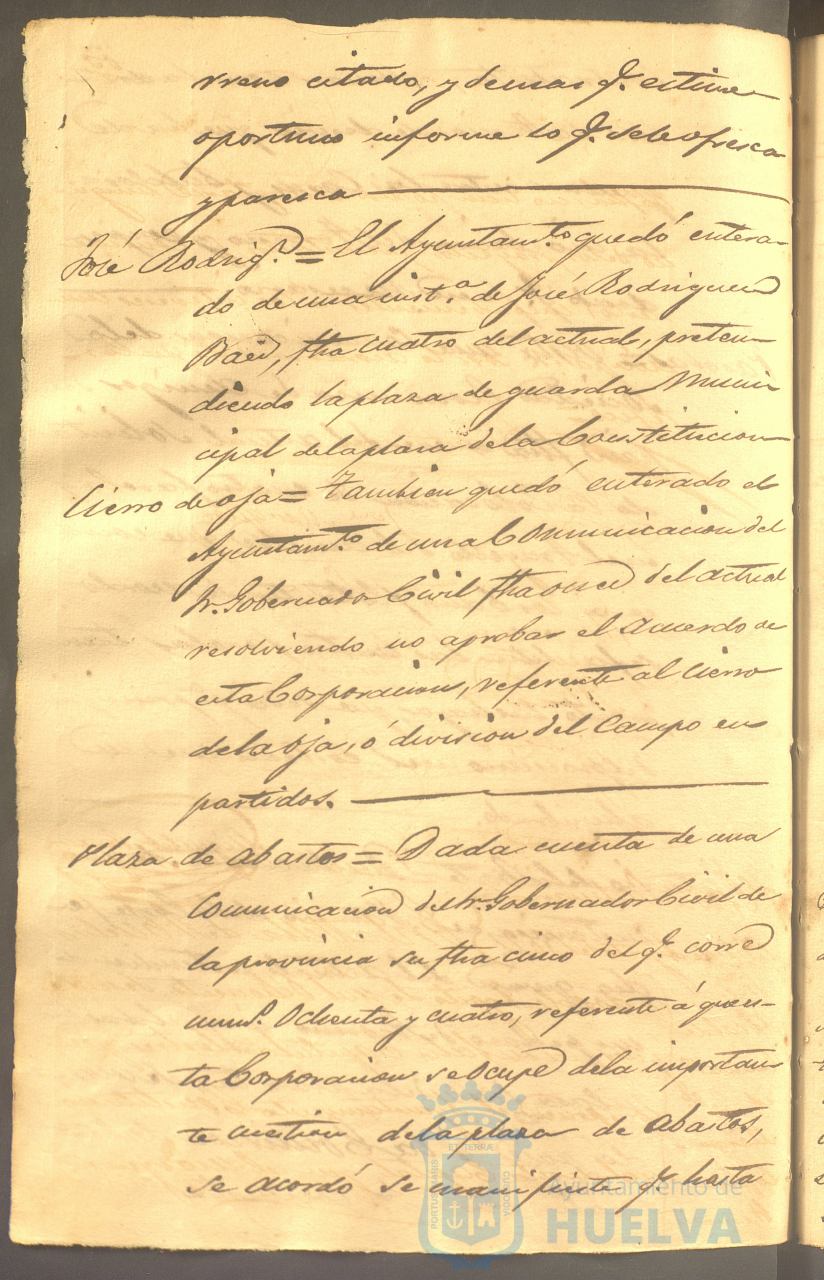 rreno citado, y demas q.e estime
oportuno informe lo q.e se le ofresca
y paresca
José Rodrig.z = El Ayuntam.to quedó entera-
do de una inst.a de José Rodriguez
Baez, fha cuatro del actual, preten-
diendo la plaza de guarda Muni-
cipal de la plaza de la Constitucion
Cierro de oja = Tambien quedó enterado el
Ayuntam.to de una Comunicacion del
Sr. Gobernador Civil fha once del actual
resolviendo no aprobar el Acuerdo de
esta Corporacion, referente al Cierro
de la oja, ó division del Campo en
partidos.
Plaza de abastos = Dada cuenta de una
Comunicacion del Sr. Gobernador Civil de
la provincia su fha cinco del q.e corre
num.o Ochenta y cuatro, referente á que es-
ta Corporacion se Ocupe de la importan-
te cuestion de la plaza de Abastos,
se acordó se manifieste q.e hasta
PORTUS MARIS
ET TERRÆ
CUSTODIA
Ayuntamiento de
HUELVA